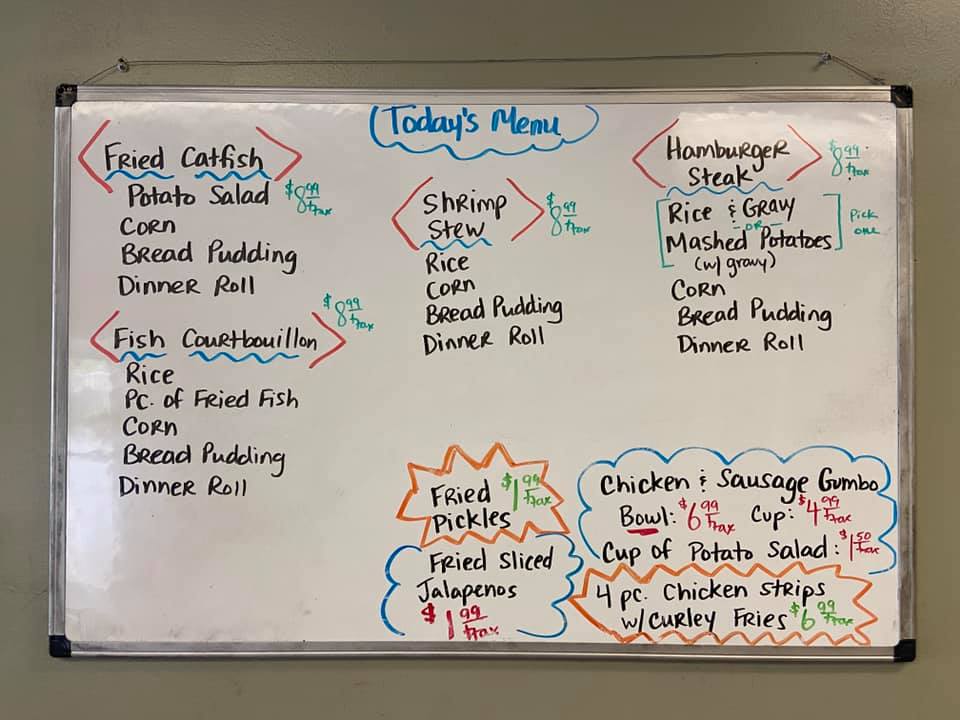 Today's Menu
Fried Catfish
Potato Salad $8.99 + tax
Corn
Bread Pudding
Dinner Roll
Fish Courtbouillon $8.99 + tax
Rice
Pc. of Fried Fish
Corn
Bread Pudding
Dinner Roll
Shrimp
Stew $8.99 + tax
Rice
Corn
Bread Pudding
Dinner Roll
Hamburger
Steak $8.99 + tax
Rice & Gravy
- OR - Pick one
Mashed Potatoes
(w/ gravy)
Corn
Bread Pudding
Dinner Roll
Fried $1.99 + tax
Pickles
Fried Sliced
Jalapenos
$1.99 + tax
Chicken & Sausage Gumbo
Bowl: $6.99 + tax Cup: $4.99 + tax
Cup of Potato Salad: $1.50 + tax
4 pc. Chicken Strips
w/ Curley Fries $6.99 + tax